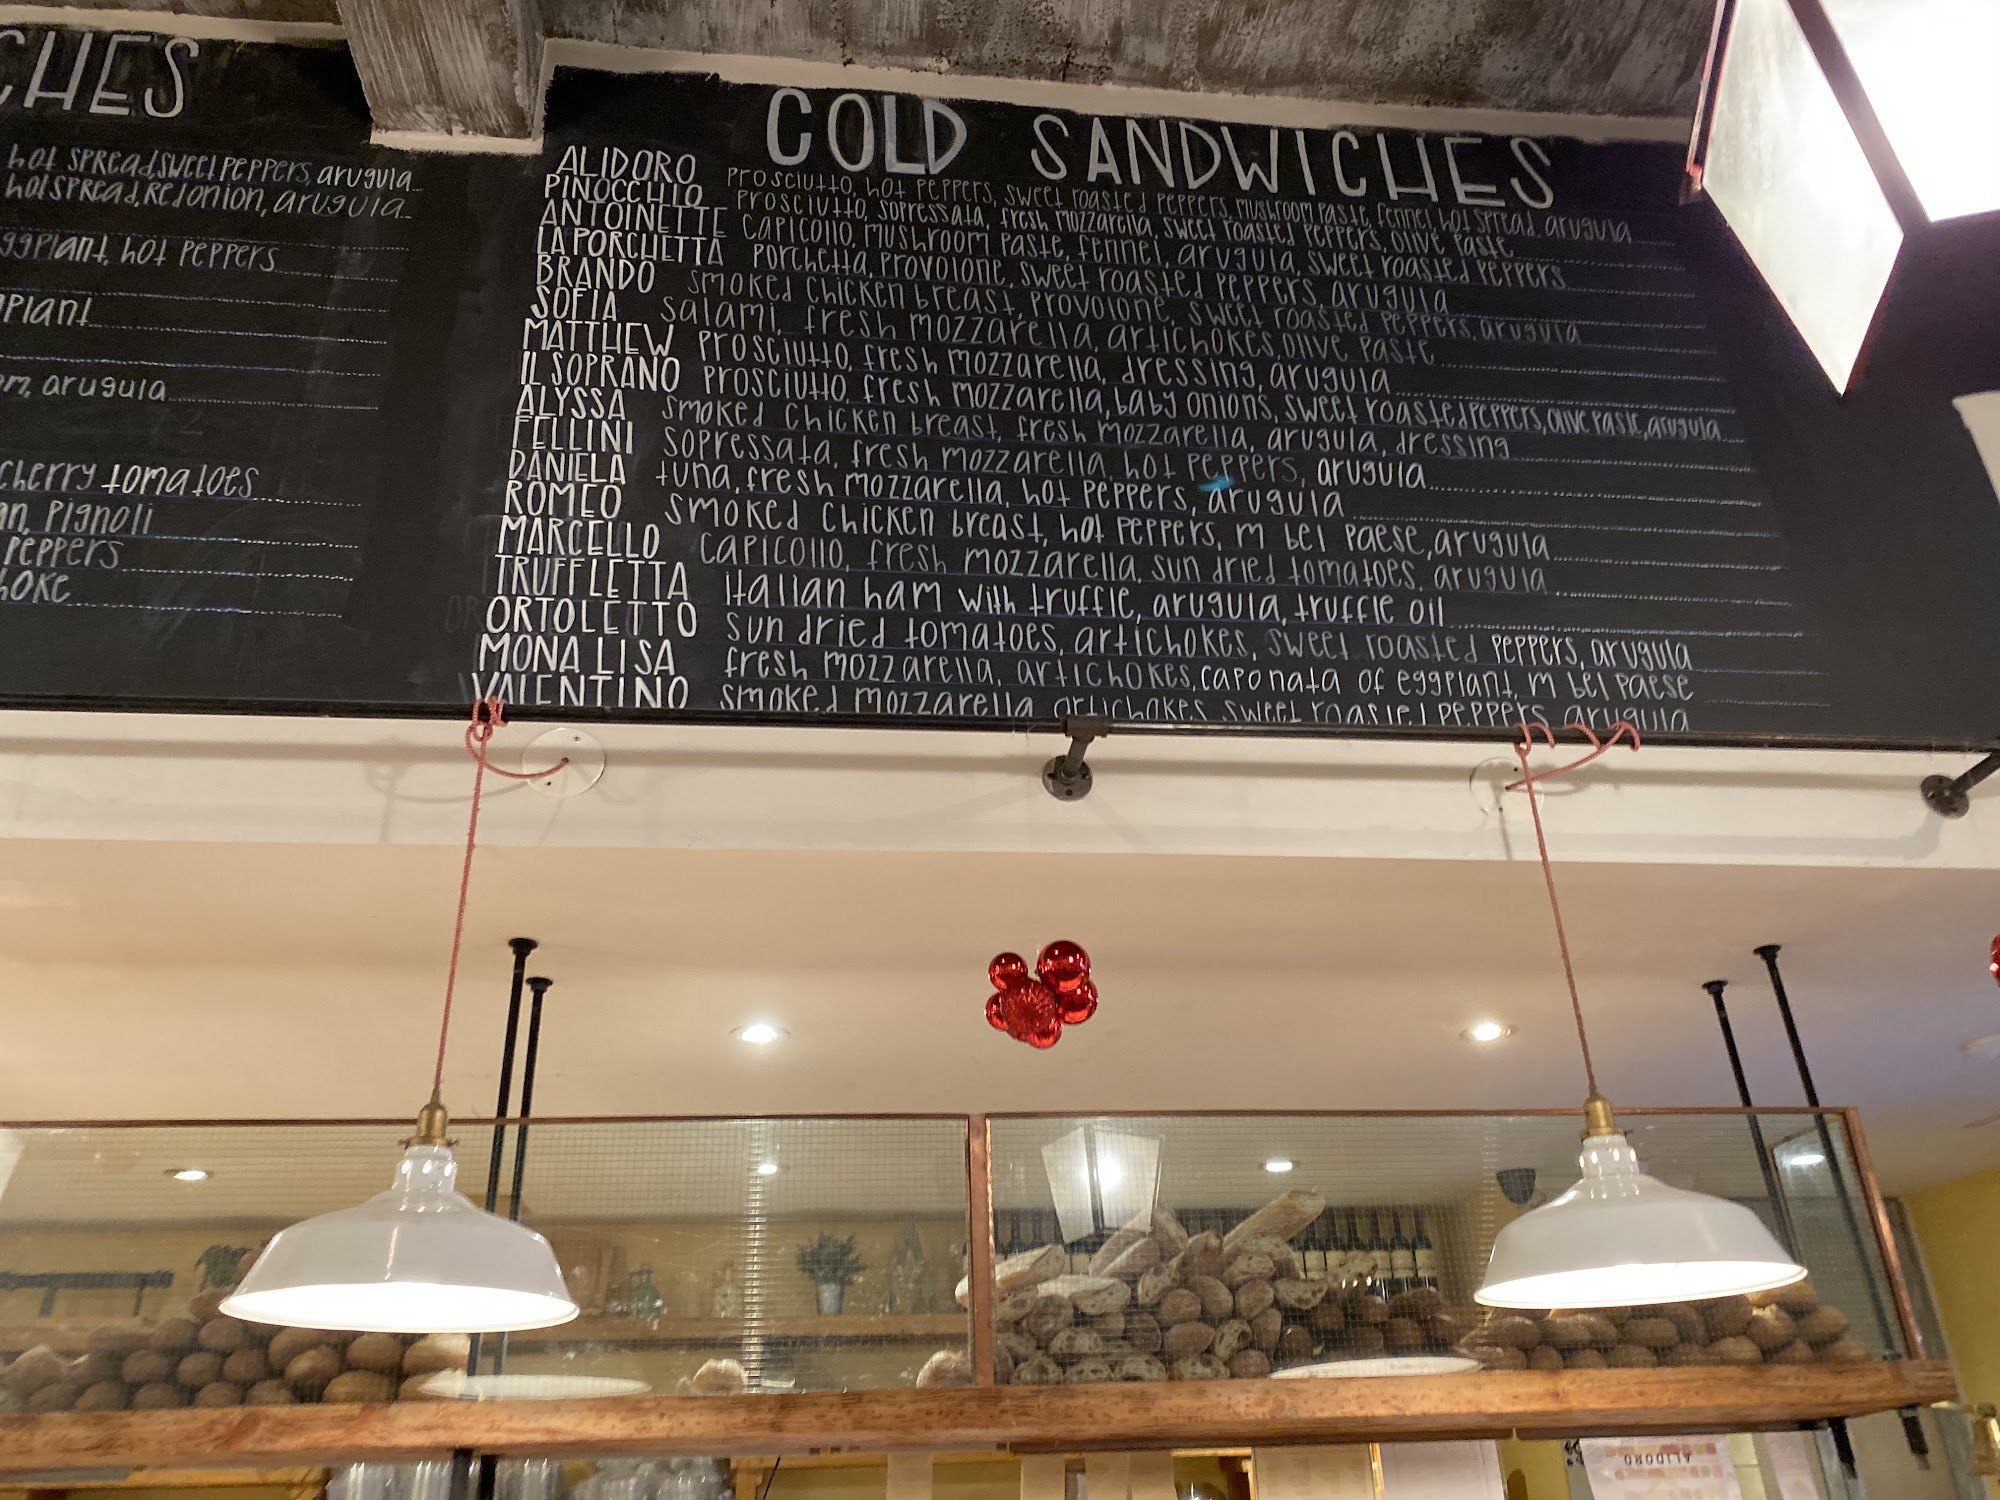 CHES
hot spread, sweet peppers, arugula
hot spread, red onion, arugula
eggplant, hot peppers
arugula
cherry tomatoes
pignoli
peppers
COLD SANDWICHES
ALIDORO prosciutto, hot peppers, sweet roasted peppers, mushroom paste, fennel, hot spread, arugula
PINOCCHIO prosciutto, sopressata, fresh mozzarella, sweet roasted peppers, olive paste
ANTOINETTE capicollo, mushroom paste, fennel, arugula, sweet roasted peppers
LA PORCHETTA porchetta, provolone, sweet roasted peppers, arugula
BRANDO smoked chicken breast, provolone, sweet roasted peppers, arugula
SOFIA salami, fresh mozzarella, artichokes, olive paste
MATTHEW prosciutto, fresh mozzarella, dressing, arugula
IL SOPRANO prosciutto, fresh mozzarella, baby onions, sweet roasted peppers, olive paste, arugula
ALYSSA smoked chicken breast, fresh mozzarella, arugula, dressing
FELLINI sopressata, fresh mozzarella, hot peppers, arugula
DANIELA tuna, fresh mozzarella, hot peppers, arugula
ROMEO smoked chicken breast, hot peppers, m bel paese, arugula
MARCELLO capicollo, fresh mozzarella, sun dried tomatoes, arugula
TRUFFLETTA italian ham with truffle, arugula, truffle oil
ORTOLETTO sun dried tomatoes, artichokes, sweet roasted peppers, arugula
MONA LISA fresh mozzarella, artichokes, caponata of eggplant, m bel paese
VALENTINO smoked mozzarella artichokes sweet roasted peppers arugula
ALIDORO